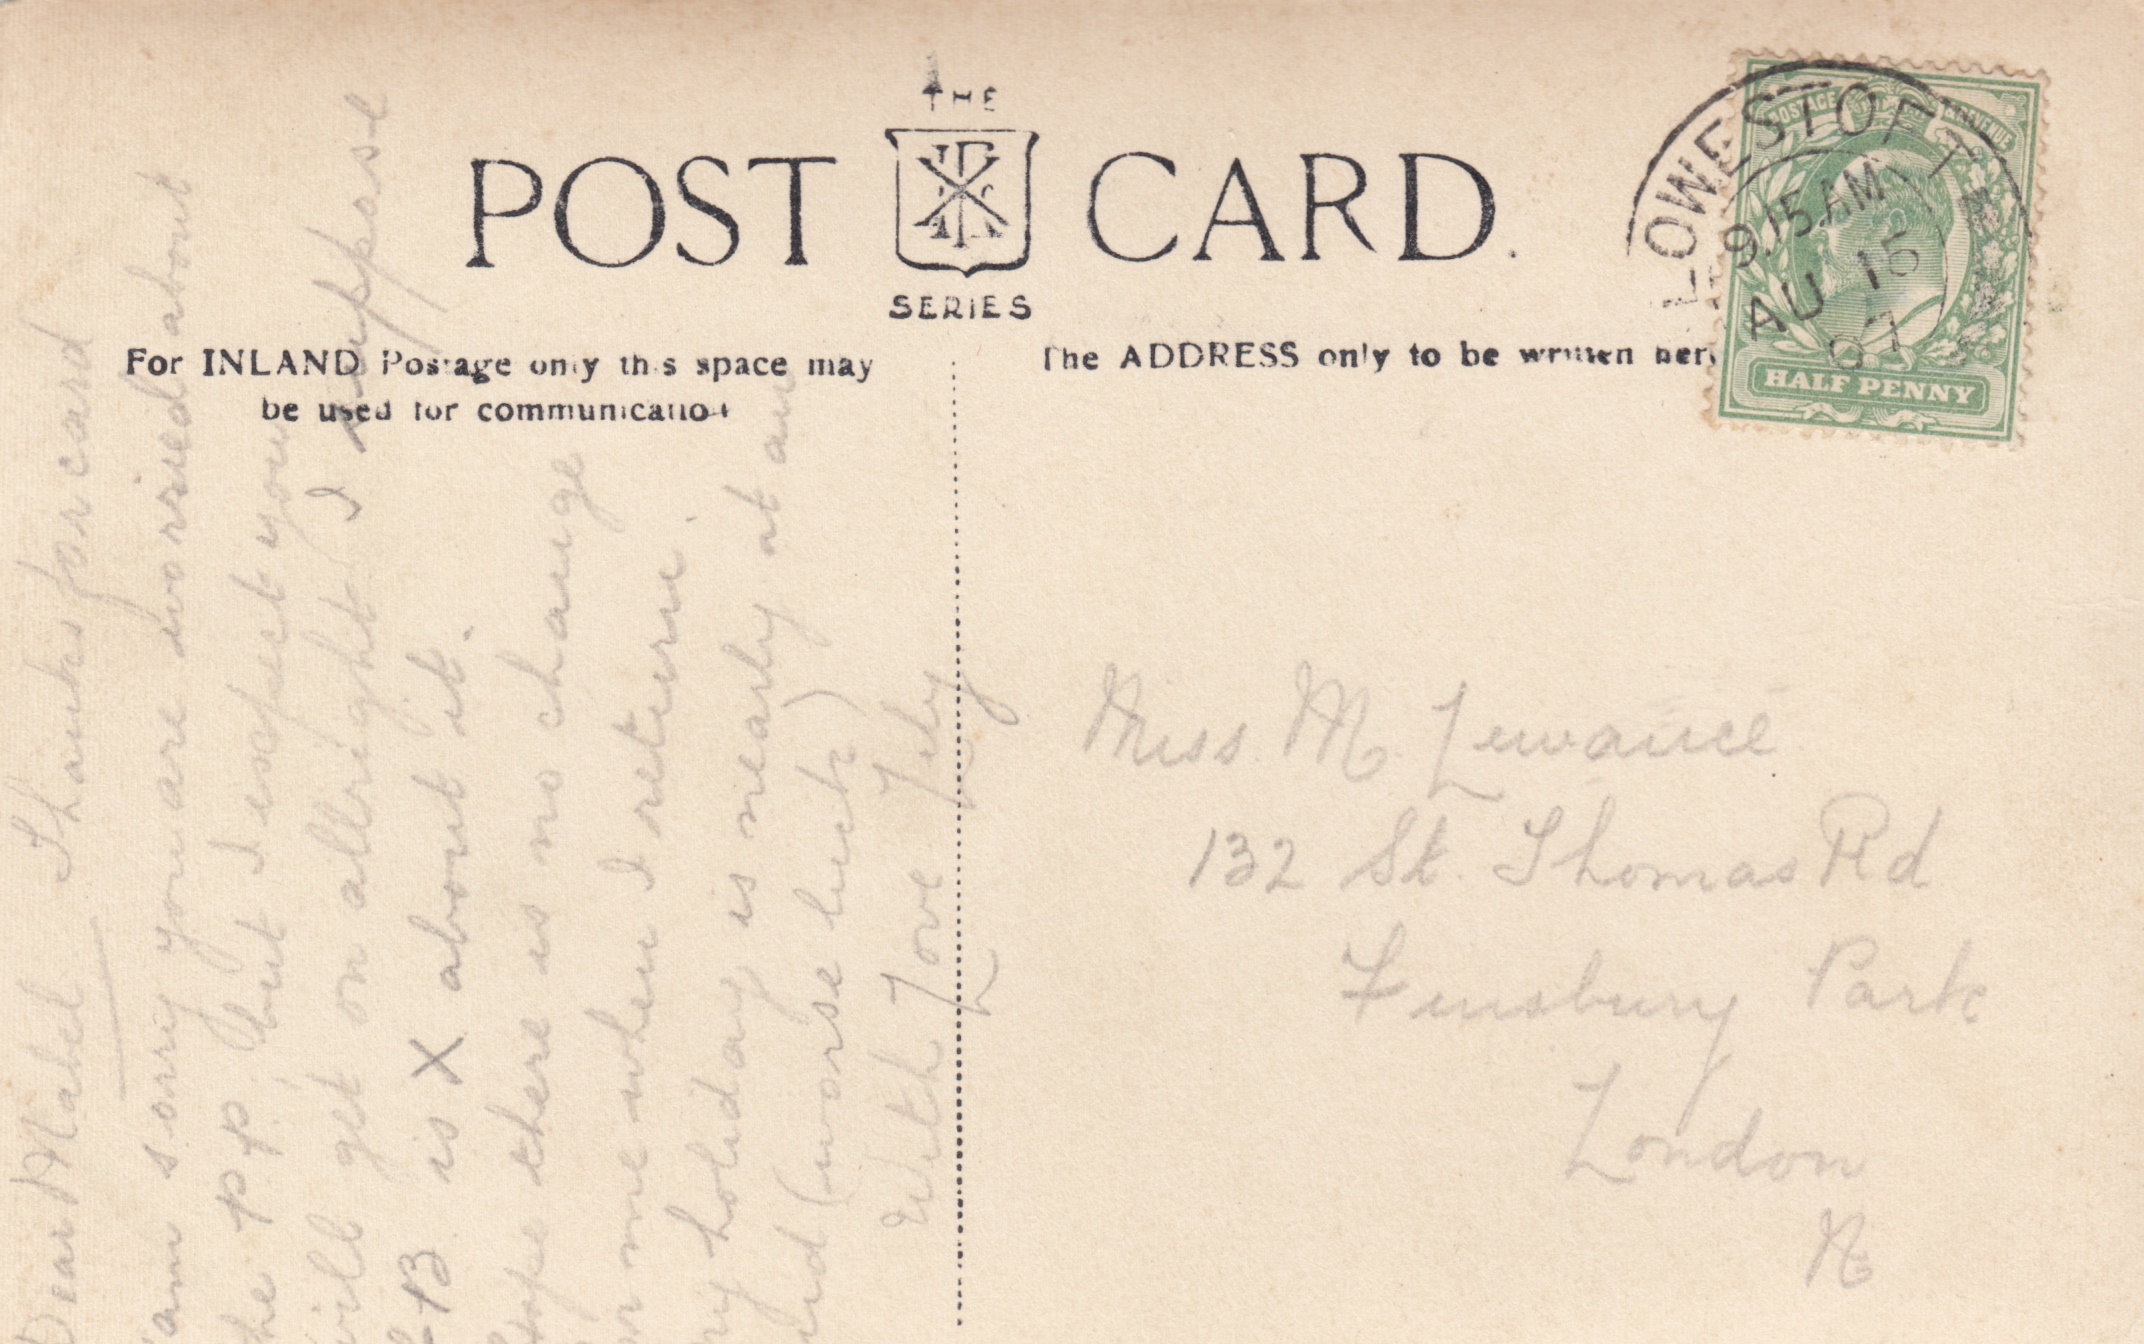 THE
POST CARD.
SERIES
For INLAND Postage only this space may
be used for communication
The ADDRESS only to be written here
LOWESTOFT
9.15 AM
AU 15
07
POSTAGE & REVENUE
HALF PENNY
Dear Mabel Thanks for card
am sorry you are worried about
the pp but I expect you
will get on allright I suppose
B is X about it.
Hope there is no change
for me when I return.
My holiday is nearly at an
end (worse luck)
With Love Lily
Miss M.
132 St. Thomas Rd
Finsbury Park
London
N